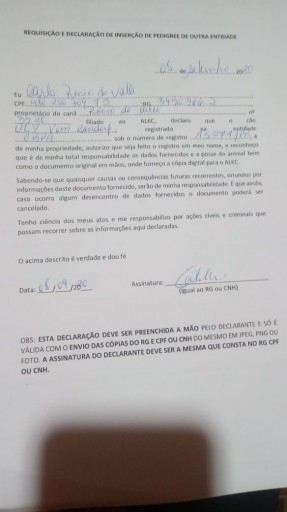 REQUISIÇÃO E DECLARAÇÃO DE INSERÇÃO DE PEDIGREE DE OUTRA ENTIDADE
de Setembro de
Eu
CPF RG
proprietário do canil nº
filiado ao ALKC, declaro que o cão
registrado na entidade
sob o número de registro e
de minha propriedade, autorizo que seja feito o registro em meu nome, e reconheço
que é de minha total responsabilidade os dados fornecidos e a posse do animal bem
como o documento original em mãos, onde forneço a cópia digital para o ALKC.
Sabendo-se que quaisquer causas ou consequências futuras recorrentes, oriundos por
informações deste documento fornecido, serão de minha responsabilidade. E que ainda,
caso ocorra algum desencontro de dados fornecidos o documento poderá ser
cancelado.
Tenho ciência dos meus atos e me responsabilizo por ações cíveis e criminais que
possam recorrer sobre as informações aqui declaradas.
O acima descrito é verdade e dou fé
Data: Assinatura:
(Igual ao RG ou CNH)
OBS: ESTA DECLARAÇÃO DEVE SER PREENCHIDA A MÃO PELO DECLARANTE E SÓ É
VÁLIDA COM O ENVIO DAS CÓPIAS DO RG E CPF OU CNH DO MESMO EM JPEG, PNG OU
FOTO. A ASSINATURA DO DECLARANTE DEVE SER A MESMA QUE CONSTA NO RG CPF
OU CNH.